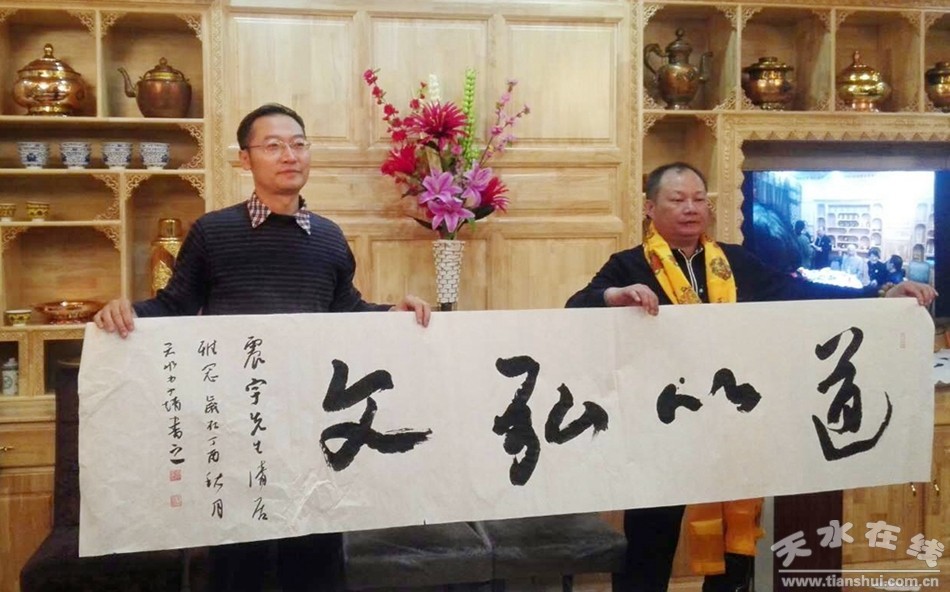 道以弘文
震宇先生清居
雅 歲於丁酉秋月
天水 靖書之
天水在线
www.tianshui.com.cn